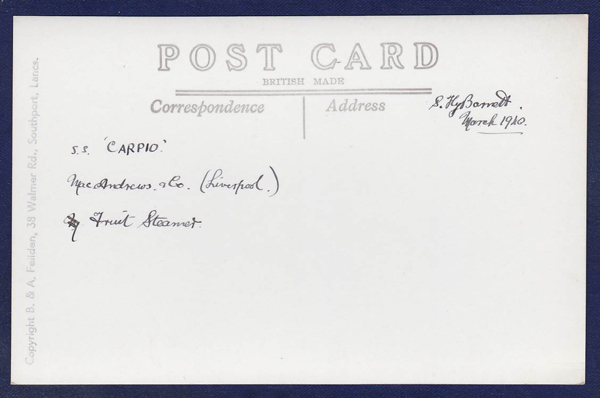 POST CARD
BRITISH MADE
Correspondence
Address
S. Hy Barrett.
March 1940.
S.S. 'CARPIO.'
MacAndrews. & Co. (Liverpool.)
Fruit Steamer.
Copyright B. & A. Feilden, 38 Walmer Rd., Southport, Lancs.